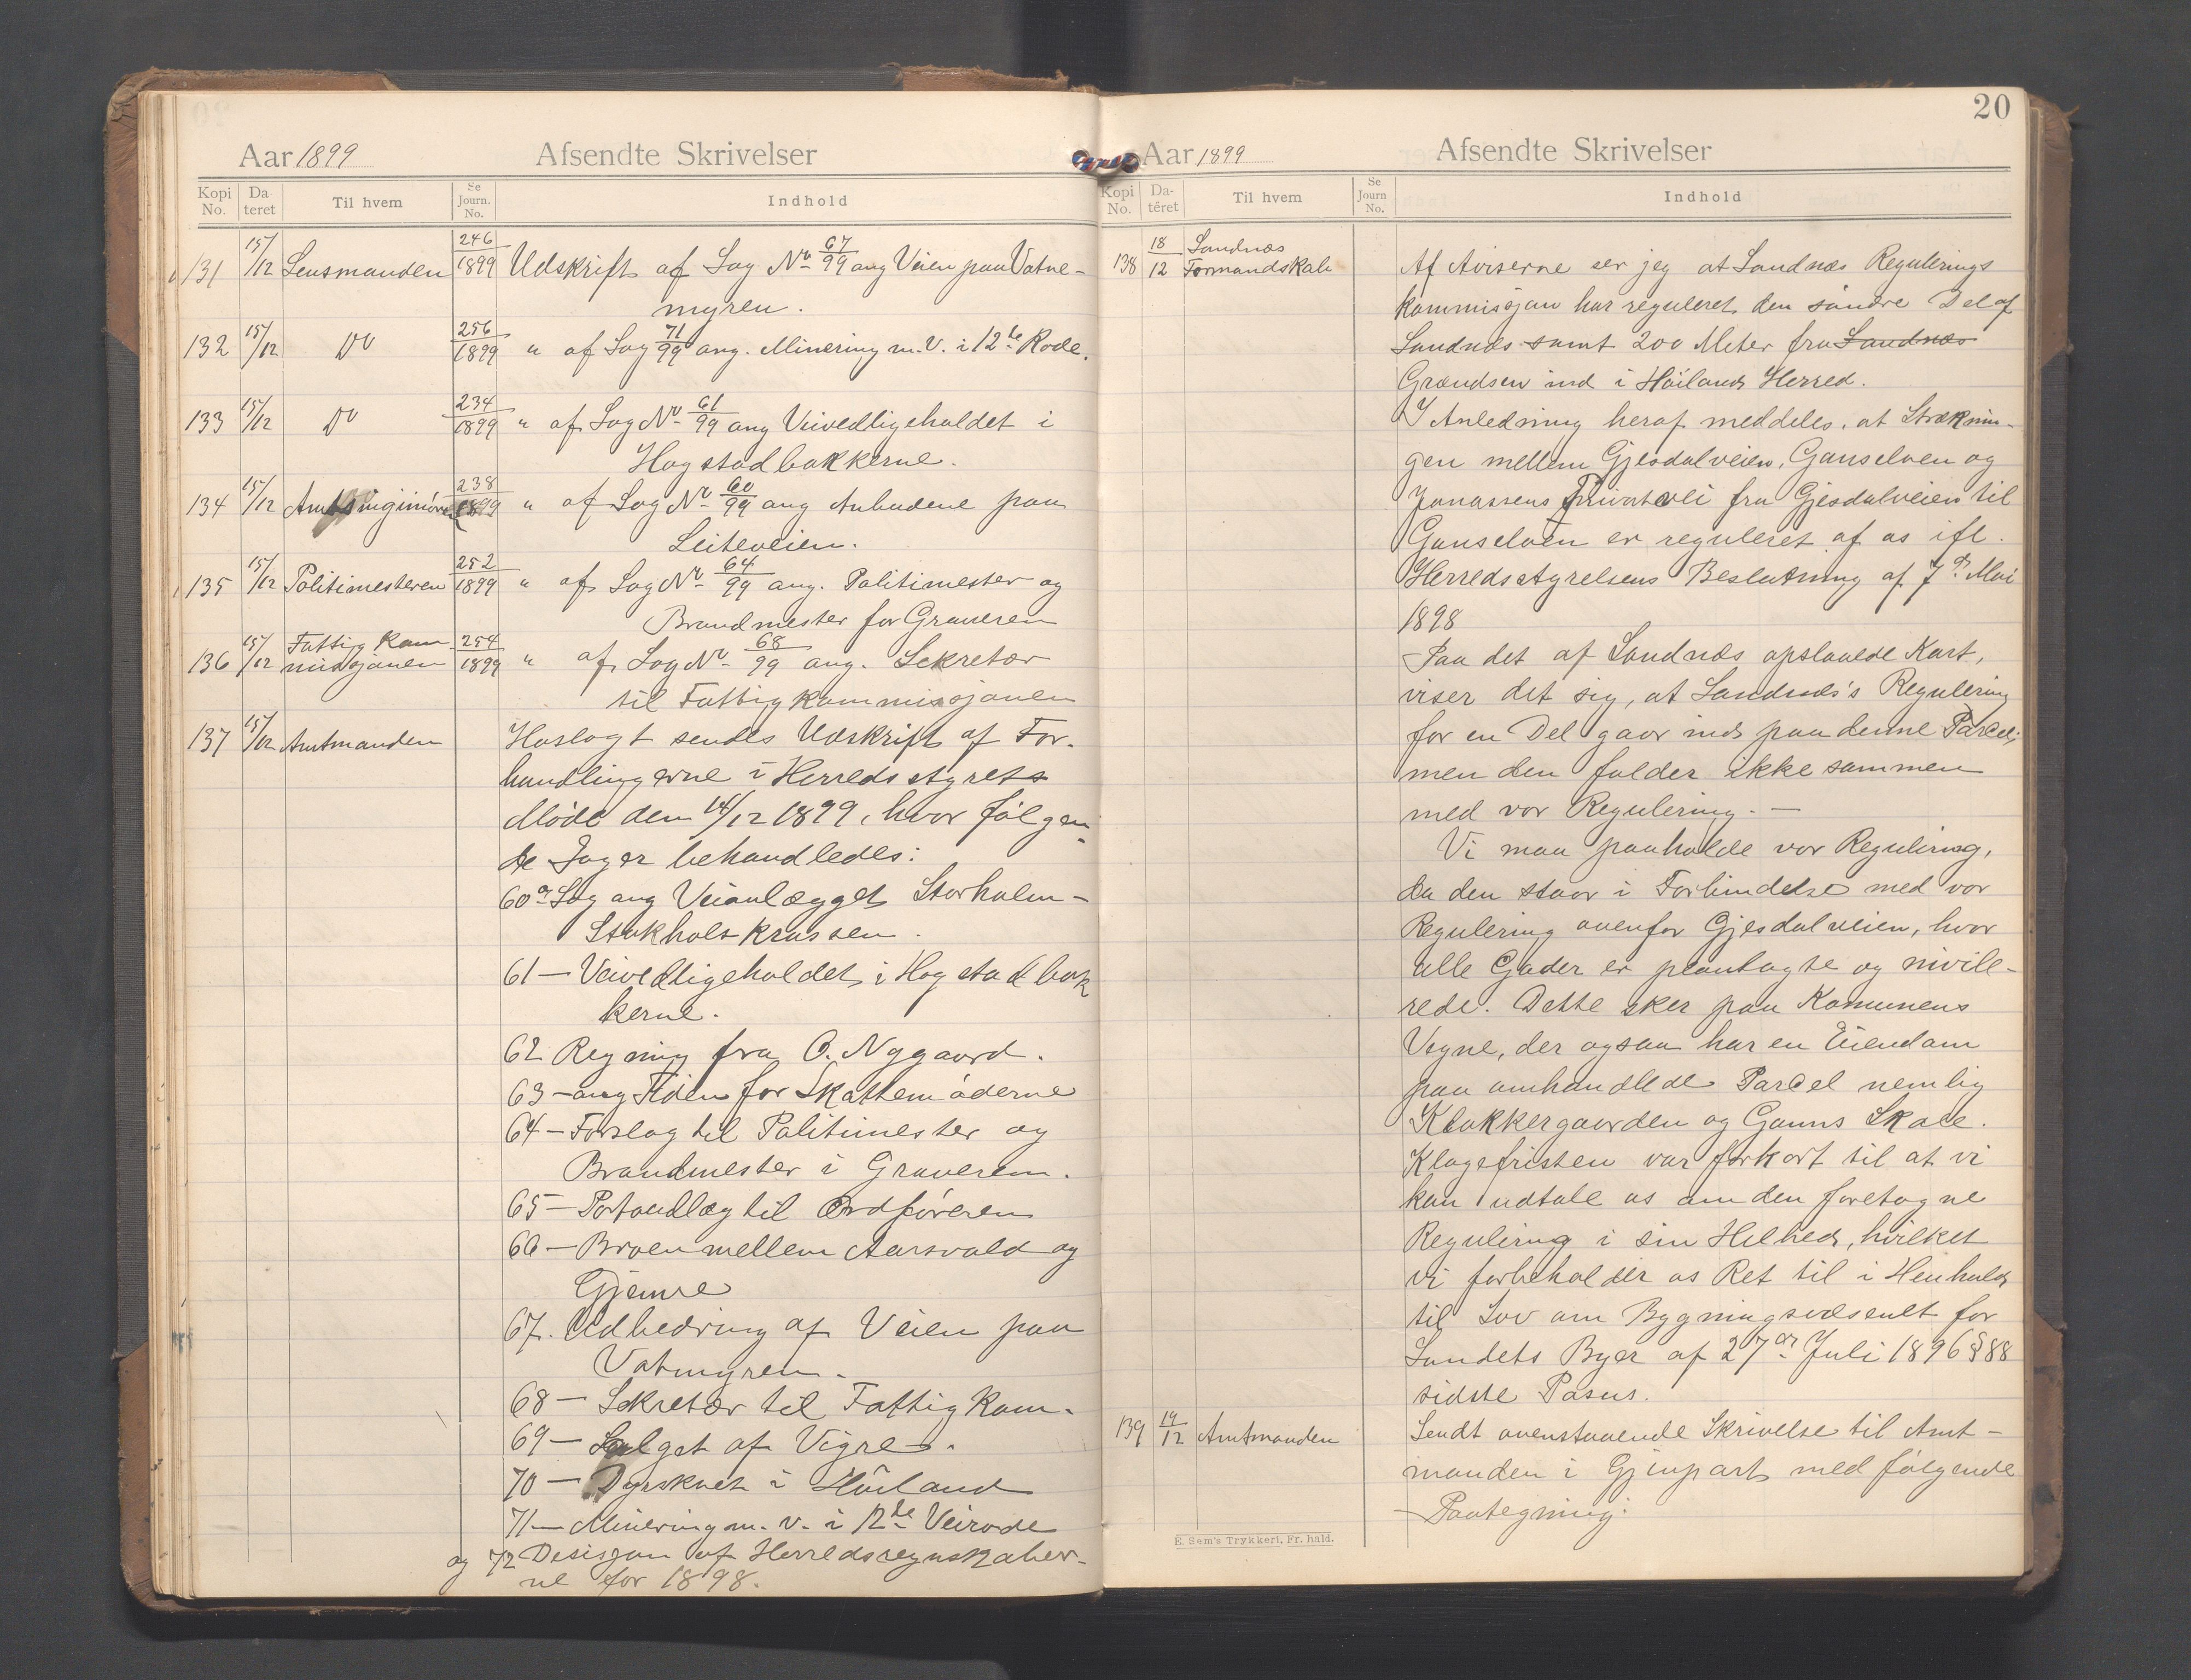 Aar 1899 Afsendte Skrivelser
Kopi No. Da-teret Til hvem Se Journ. No. Indhold
131 15/12 Lensmanden 246/1899 Udskrift af Sag No 67/99 ang Veien paa Vatne-
myren.
132 15/12 Do 256/1899 " af Sag 71/99 ang. Minering m.V. i 12te Rode.
133 15/12 Do 234/1899 " af Sag No 61/99 ang Veivedligeholdet i
Hogstadbakkerne.
134 15/12 Amtsingeniøren 238/1899 " af Sag No 60/99 ang Anbudene paa
Leiteveien.
135 15/12 Politimesteren 252/1899 " af Sag No 64/99 ang. Politimester og
Brandmester for Graveren
136 15/12 Fattigkom-misjonen 254/1899 " af Sag No 68/99 ang. Sekretær
til Fattigkommissjonen
137 15/12 Amtmanden Hoslagt sendes Udskrift af For-
handlingerne i Herredsstyrets
Møde den 14/12 1899, hvor følgen-
de Sager behandledes:
60 Sag ang Veianlægget Storholm-
Stokholskrossen.
61 — Veivedligeholdet i Hogstadbak
kerne.
62 Regning fra O. Nygaard.
63 — ang Tiden for Skattemøderne
64 — Forslag til Politimester og
Brandmester i Graveren.
65 — Portoudlæg til Ordføreren
66 — Broen mellem Aarsvold og
Gjemre
67. Udbedring af Veien paa
Vatnmyren.
68 — Sekretær til Fattigkom.
69 — Salget af Vigre.
70 — Dyrskuet i Høiland
71 — Minering m.v. i 12te Veirode
og 72 Desisjon af Herredsregnskaber-
ne for 1898.
20
Aar 1899 Afsendte Skrivelser
Kopi No. Da-teret Til hvem Se Journ No. Indhold
138 18/12 Sandnæs Formandskab Af Aviserne ser jeg at Sandnæs Regulerings
kommissjon har reguleret den søndre Del af
Sandnæs samt 200 Meter fra Sandnæs
Grændsen ind i Høilands Herred.
I Anledning heraf meddeles, at Stræknin-
gen mellem Gjesdalveien, Ganselven og
Jonassens Privatvei fra Gjesdalveien til
Ganselven er reguleret af os ifl.
Herredsstyrelsens Beslutning af 7de Mai
1898
Paa det af Sandnæs opslaaede Kart,
viser det sig, at Sandnæs's Regulering
for en Del gaar ind paa denne Parcel,
men den falder ikke sammen
med vor Regulering. —
Vi maa paaholde vor Regulering,
da den staar i Forbindelse med vor
Regulering ovenfor Gjesdalveien, hvor
alle Gader er planlagte og niville-
rede. Dette sker paa Komunens
Vegne, der ogsaa har en Eiendom
paa omhandlede Parcel nemlig
Klokkergaarden og Ganns Skole.
Klagefristen var forkort til at vi
kan udtale os om den foretagne
Regulering i sin Helhed, hvilket
vi forbeholder os Ret til i Henhold
til Lov om Bygningsvæsenet for
Landets Byer af 27de Juli 1896 § 88
sidste Pasus.
139 19/12 Amtmanden Sendt ovenstaaende Skrivelse til Amt-
manden i Gjenpart med følgende
Paategning:
E. Sem's Trykkeri, Fr. hald.